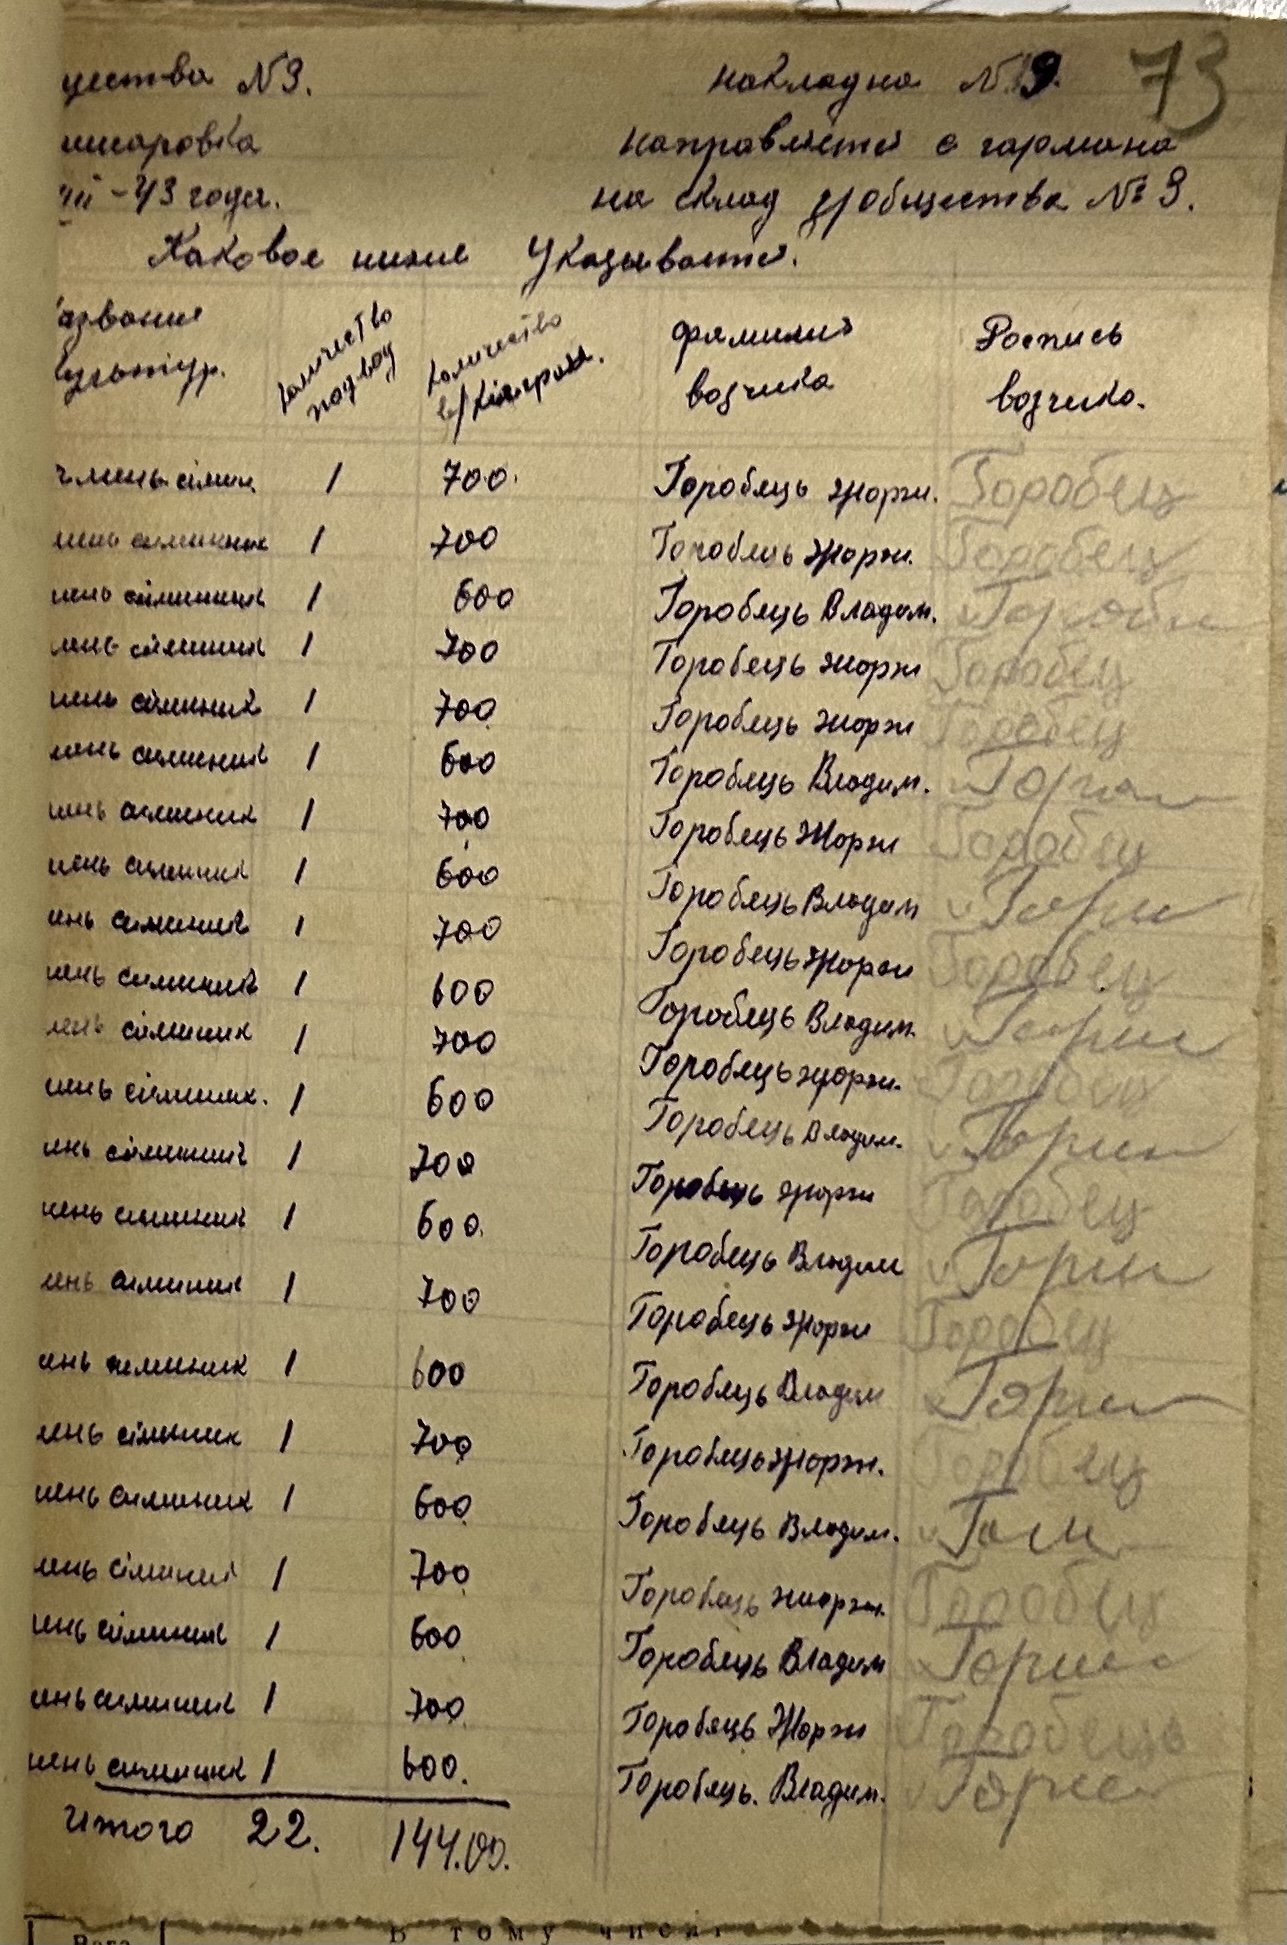 73
щества №9. накладна № 9.
шаровка направляете с гармана
VIII - 43 года. на склад зробщества № 9.
Каковое ниже Указываете.
азвание культур. количество подвод количество в/кілграм. фамилия возчика Роспись возчика.
чмень сімин. 1 700. Горобяць Жорж. Горобец
мень симинник 1 700 Горобяць Жорж. Горобец
мень сіминник 1 600 Горобяць Владим.
мень сіминник 1 700 Горобець Жорж Горобец
мень сіминик 1 700 Горобяць Жорж Горобец
мень симиник 1 600 Горобяць Владим.
мень симиник 1 700 Горобяць Жорж Горобец
мень симиник 1 600 Горобяць Владим
ень симиник 1 700 Горобець Жорж Горобец
мень симиник 1 600 Горобяць Владим.
мень сіминик 1 700 Горобяць Жорж. Горобец
мень сіминик. 1 600 Горобяць Владим.
ень сіминик 1 700 Горобець Жорж Горобец
мень симиник 1 600 Горобяць Владим
ень симиник 1 700 Горобець Жорж Горобец
ень симиник 1 600 Горобяць Владим
мень сіминик 1 700 Горобяць Жорж. Горобец
мень симиник 1 600 Горобяць Владим.
мень сіминик 1 700 Горобяць Жорж. Горобец
мень сіминик 1 600 Горобяць Владим
ень симиник 1 700 Горобяць Жорж Горобець
мень симиник 1 600. Горобяць. Владим.
Итого 22. 144.00.
В тому числі
Вага